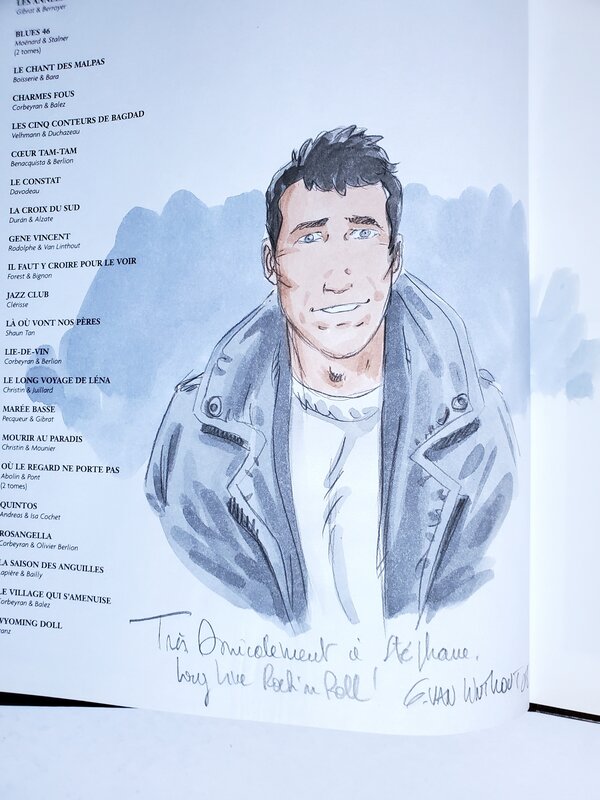 LES ANNÉES
Gibrat & Berroyer
BLUES 46
Moënard & Stalner
(2 tomes)
LE CHANT DES MALPAS
Boisserie & Bara
CHARMES FOUS
Corbeyran & Balez
LES CINQ CONTEURS DE BAGDAD
Velhmann & Duchazeau
CŒUR TAM-TAM
Benacquista & Berlion
LE CONSTAT
Davodeau
LA CROIX DU SUD
Durán & Alzate
GENE VINCENT
Rodolphe & Van Linthout
IL FAUT Y CROIRE POUR LE VOIR
Forest & Bignon
JAZZ CLUB
Clérisse
LÀ OÙ VONT NOS PÈRES
Shaun Tan
LIE-DE-VIN
Corbeyran & Berlion
LE LONG VOYAGE DE LÉNA
Christin & Juillard
MARÉE BASSE
Pecqueur & Gibrat
MOURIR AU PARADIS
Christin & Mounier
OÙ LE REGARD NE PORTE PAS
Abolin & Pont
(2 tomes)
QUINTOS
Andreas & Isa Cochet
ROSANGELLA
Corbeyran & Olivier Berlion
LA SAISON DES ANGUILLES
Lapière & Bailly
LE VILLAGE QUI S'AMENUISE
Corbeyran & Balez
WYOMING DOLL
Franz
Très Amicalement à Stéphane.
Long Live Rock'n Roll!
G. VAN LINTHOUT